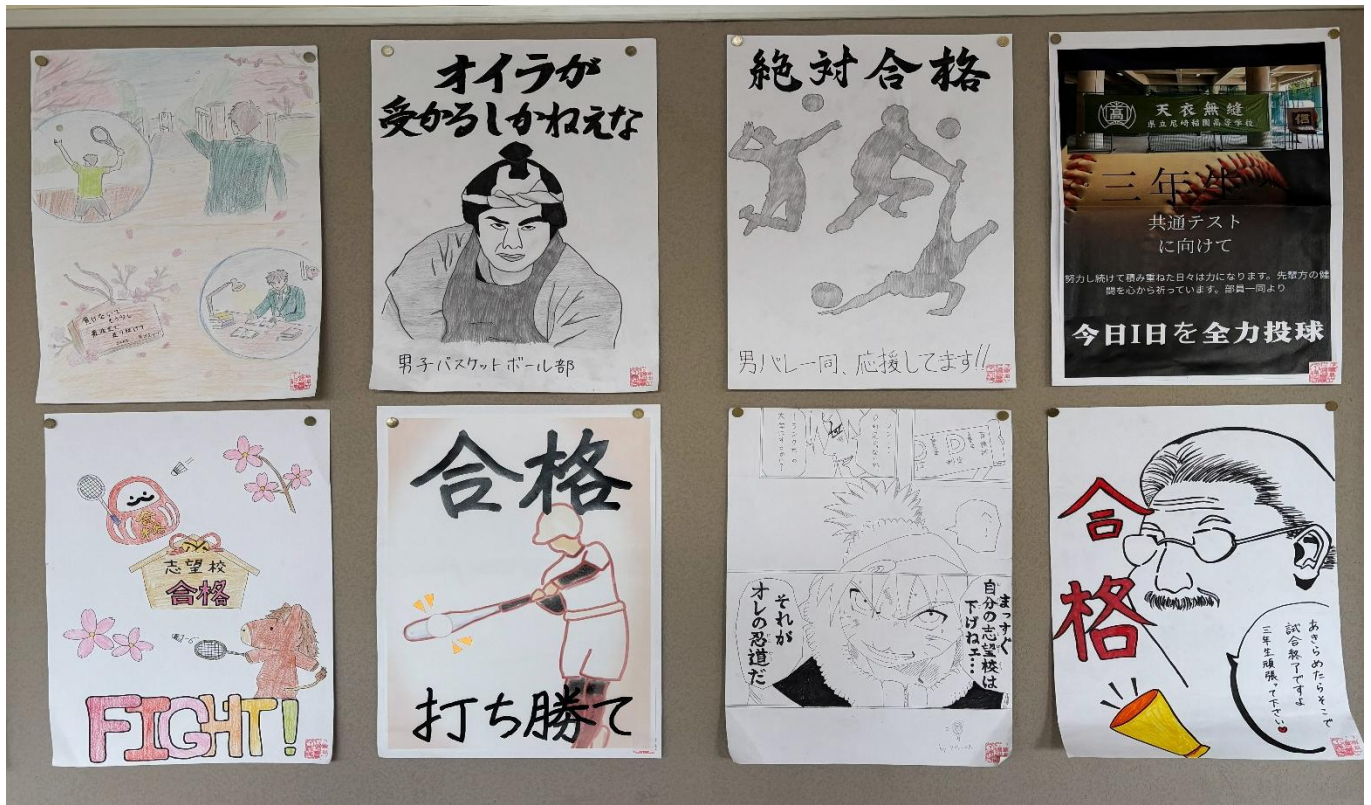 オイラが
受かるしかねえな
男子バスケットボール部
絶対合格
男バレ一同、応援してます!!
天衣無縫
県立尼崎稲園高等学校
信
三年生へ
共通テスト
に向けて
努力し続けて積み重ねた日々は力になります。先輩方の健
闘を心から祈っています。部員一同より
今日1日を全力投球
志望校
合格
FIGHT!
合格
打ち勝て
まっすぐ
自分の志望校は
下げねェ…
それが
オレの忍道だ
合格
あきらめたらそこで
試合終了ですよ
三年生頑張って下さい